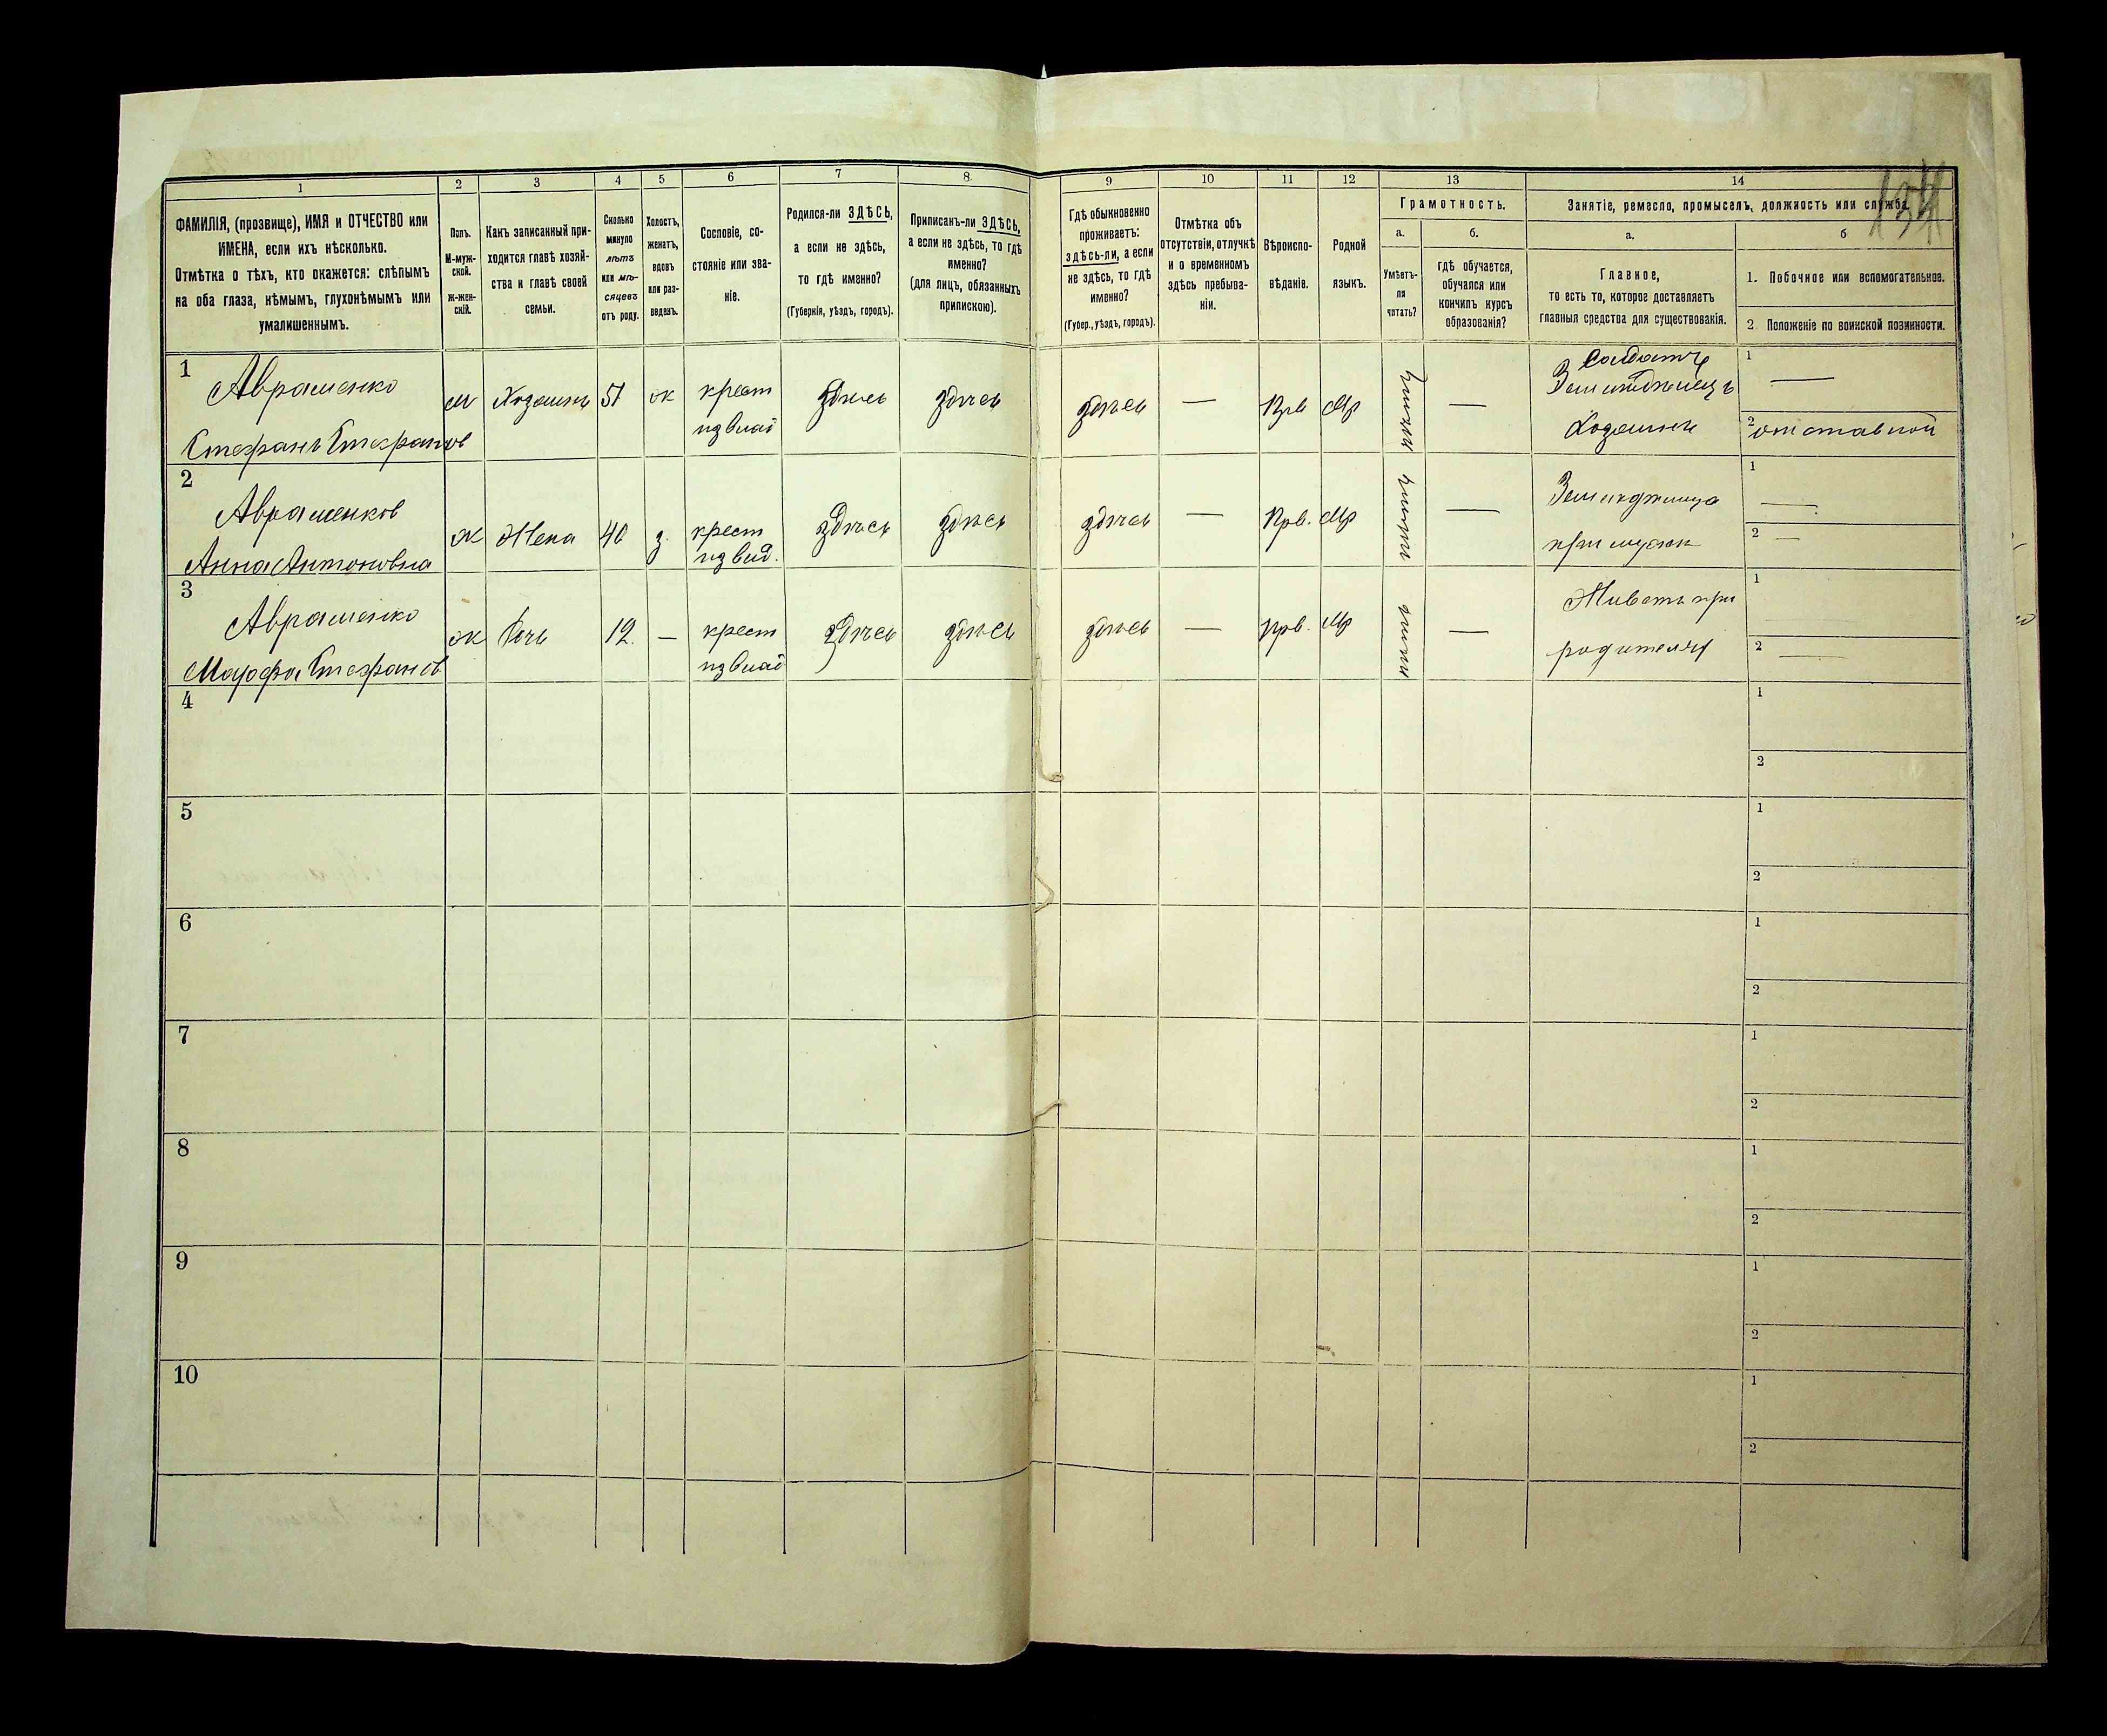 134
1 2 3 4 5 6 7 8 9 10 11 12 13 14
ФАМИЛІЯ, (прозвище), ИМЯ и ОТЧЕСТВО или
ИМЕНА, если ихъ нѣсколько.
Отмѣтка о тѣхъ, кто окажется: слѣпымъ
на оба глаза, нѣмымъ, глухонѣмымъ или
умалишеннымъ.
Полъ.
М-муж-
ской.
ж-жен-
скій.
Какъ записанный при-
ходится главѣ хозяй-
ства и главѣ своей
семьи.
Сколько
минуло
лѣтъ
или мѣ-
сяцевъ
отъ роду.
Холостъ,
женатъ,
вдовъ
или раз-
веденъ.
Сословіе, со-
стояніе или зва-
ніе.
Родился-ли ЗДѢСЬ,
а если не здѣсь,
то гдѣ именно?
(Губернія, уѣздъ, городъ).
Приписанъ-ли ЗДѢСЬ,
а если не здѣсь, то гдѣ
именно?
(для лицъ, обязанныхъ
припискою).
Гдѣ обыкновенно
проживаетъ:
здѣсь-ли, а если
не здѣсь, то гдѣ
именно?
(Губер., уѣздъ, городъ).
Отмѣтка объ
отсутствіи, отлучкѣ
и о временномъ
здѣсь пребыва-
ніи.
Вѣроиспо-
вѣданіе.
Родной
языкъ.
Грамотность.
а.
Умѣетъ-
ли
читать?
б.
гдѣ обучается,
обучался или
кончилъ курсъ
образованія?
Занятіе, ремесло, промыселъ, должность или служба.
а.
Главное,
то есть то, которое доставляетъ
главныя средства для существованія.
б
1. Побочное или вспомогательное.
2 Положеніе по воинской повинности.
1 Авраменко
Стефанъ Стефанов
м Хозяинъ 51 ж крест
из влад
здѣсь здѣсь здѣсь — Прв Мр — Хозяинъ
1 —
2 отставной
2 Авраменков
Анна Антоновна
ж Жена 40 з. крест
из влд.
здѣсь здѣсь здѣсь — Прв. Мр —
при мужѣ
1 —
2 —
3 Авраменко
Марфа Стефанов
ж Дочь 12. — крест
из влад
здѣсь здѣсь здѣсь — Прв. Мр — Живетъ при
родителях
1
2 —
4 1
2
5 1
2
6 1
2
7 1
2
8 1
2
9 1
2
10 1
2